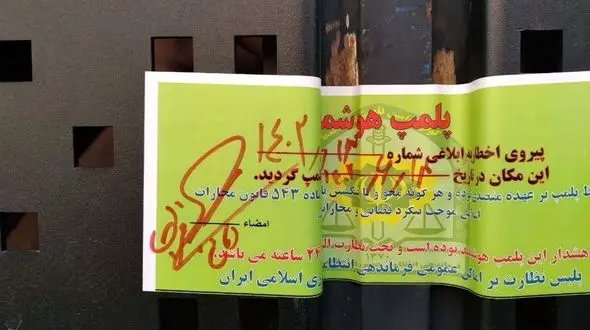 پلمپ هوشم
پیروی اخطاریه ابلاغی شماره
این مکان در تاریخ ۱۴۰۳ مپ گردید.
پلمپ بر عهده متصدی بوده و هر گونه محو و یا شکستن ماده ۵۴۳ قانون مجازات
موجب پیگرد قضائی و مجازات
امضاء
هشدار این پلمپ هوشمند بوده است و تحت نظارت ۲۴ ساعته می باشد.
پلیس نظارت بر اماکن عمومی فرماندهی انتظامی اسلامی ایران